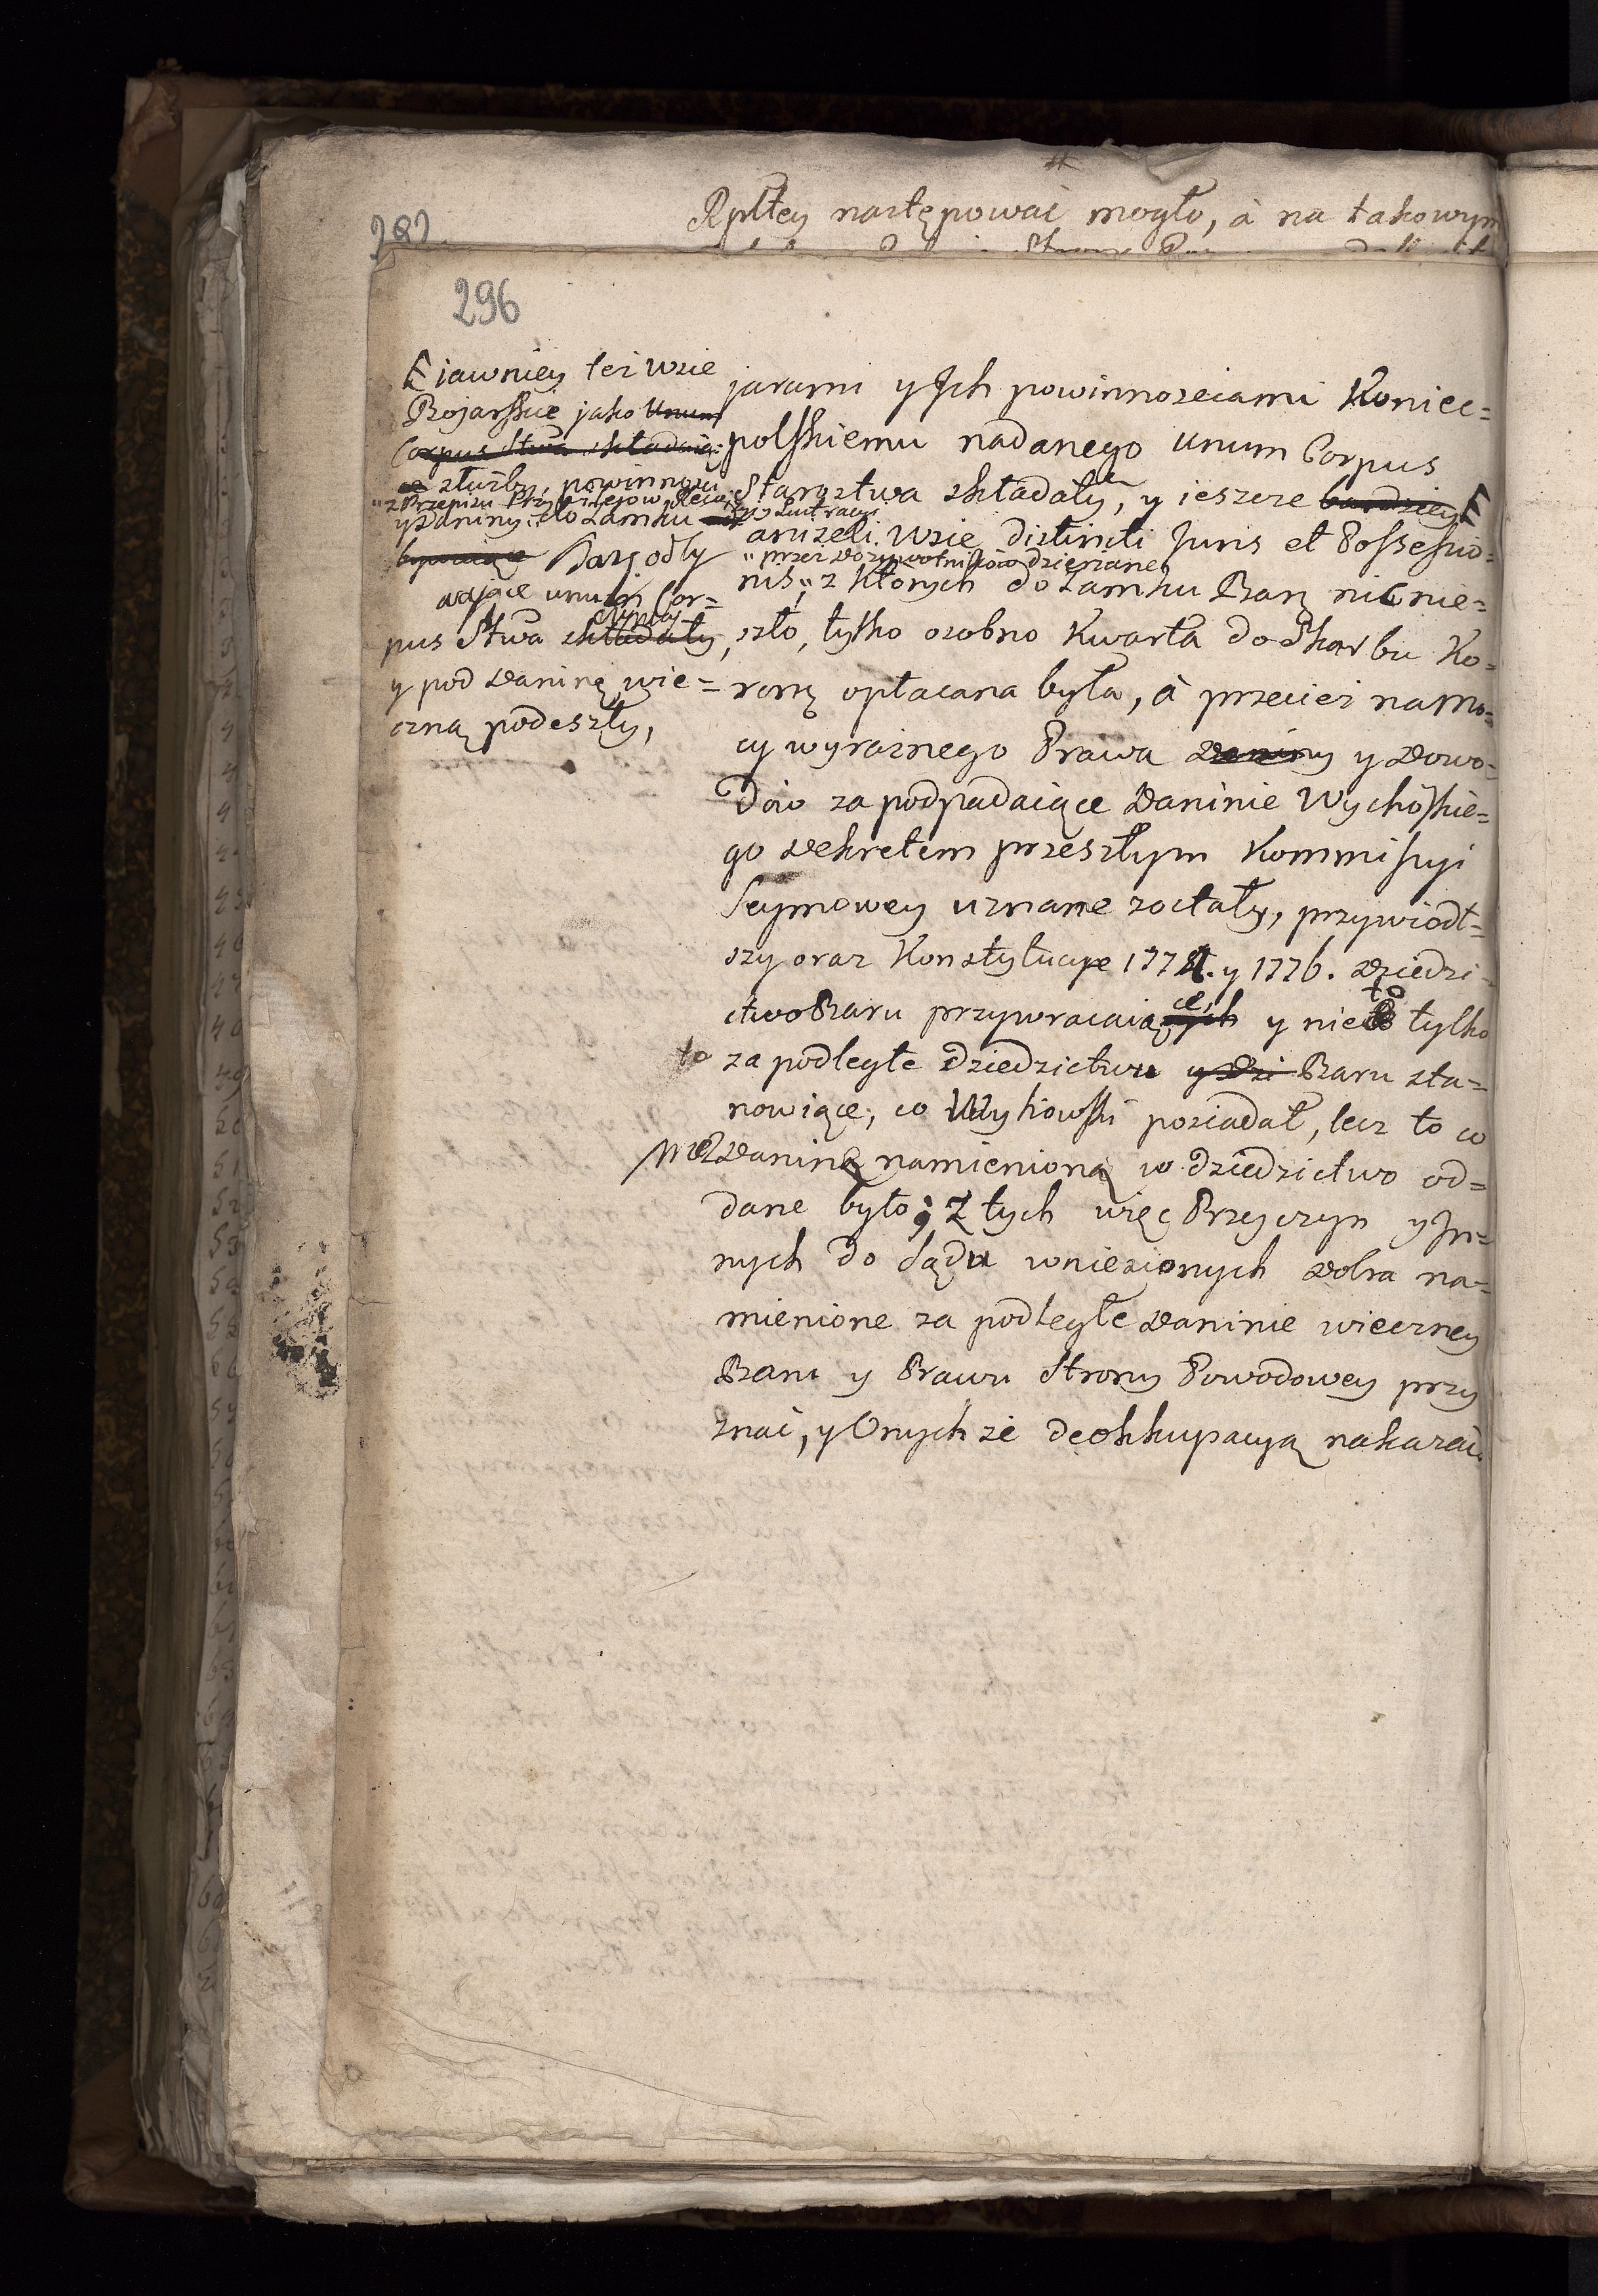 Rpltey następować mogło, à na takowym
282.
296
jawniey też wsie
Bojarskie jako Unum
Corpus Stwa składaią-
ce służby, powinności
"z Przepisu Przywilejów,
y Daniny do Zamku
Bary odby
waiące unum Cor=
pus Stwa składały,
y pod Daninę wie=
czną podeszły,
jarami y Jch powinnościami Koniec=
polskiemu nadanego unum Corpus
Starostwa składały, y ieszcze bardziey
aniżeli Wsie distincti Juris et Possessio=
"przez Dożywotników dzierżane
nis,, z których do Zamku Baru nic nie=
szło, tylko osobno Kwarta do Skarbu Ko=
rony opłacana była, à przecież na mo=
cy wyraźnego Prawa Daniny y Dowo=
dów za podpadaiące Daninie Wychōskie=
go Dekretem przeszłym Kommissyi
Seymowey uznane zostały, przywiódł=
szy oraz Konstytucye 1774. y 1776. Dziedzi=
ctwo Baru przywracaiących y nie to tylko
to za podległe Dziedzictwu y Dzi Baru sta=
nowiące, co Wyhowski posiadał, lecz to co
Daniną namienioną w dziedzictwo od=
dane było; Z tych więc Przyczyn y Jn=
nych do Sądu wniesionych Dobra na=
mienione za podległe Daninie wieczney
Baru y Prawu Strony Powodowey przy
znać, y Onychże deokkupacyą nakazać.